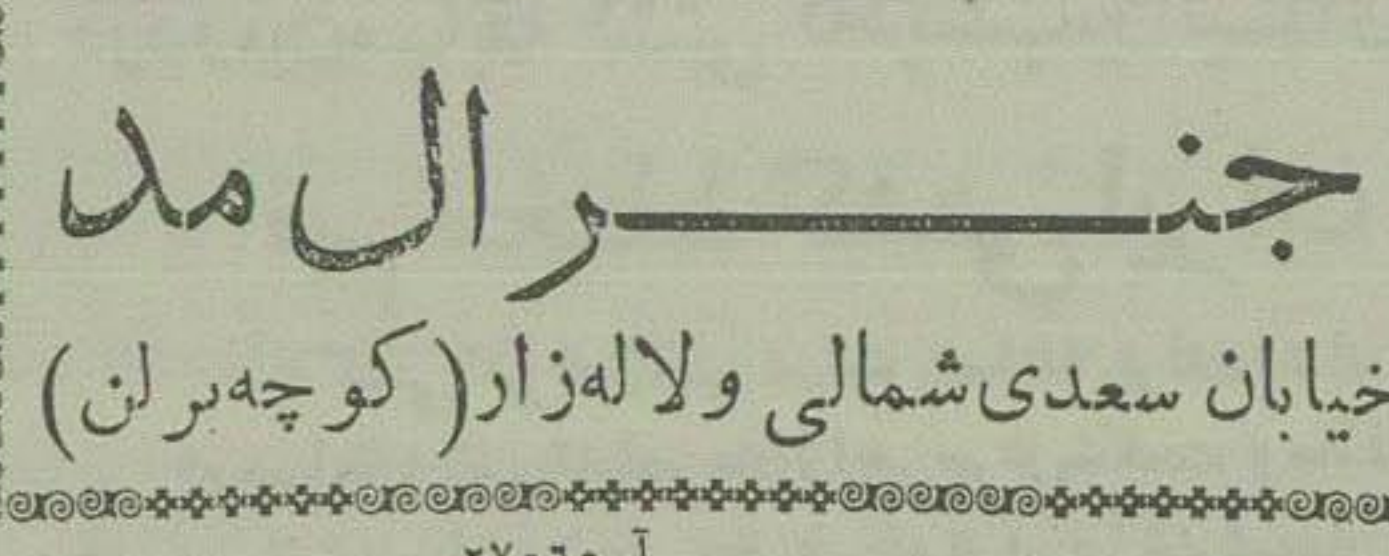 جنرال مد
خیابان سعدی شمالی و لاله‌زار (کوچه برلن)